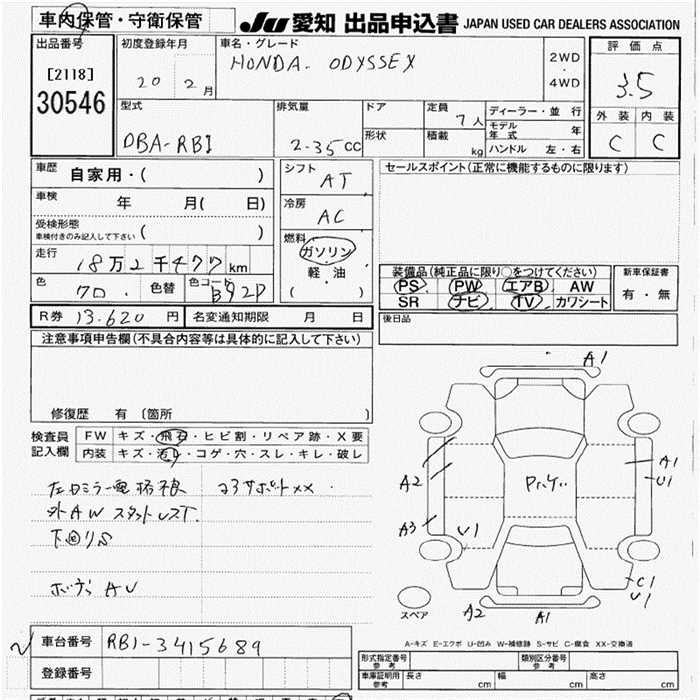 車内保管・守衛保管
JU 愛知 出品申込書 JAPAN USED CAR DEALERS ASSOCIATION
出品番号
[2118]
30546
初度登録年月
20 2月
車名・グレード
HONDA- ODYSSEY
2WD
・
4WD
評価点
3.5
外装 内装
C C
型式
DBA-RB1
排気量
2-35cc
ドア
形状
定員
7人
積載
kg
ディーラー・並行
モデル年式 年
ハンドル 左・右
車歴 自家用・( )
車検 年 月( 日)
受検形態
車検付きのみ記入して下さい ( )
走行 18万2千477km
色 クロ. 色替 色コード B92P
シフト AT
冷房 AC
燃料
ガソリン
軽・油
( )
セールスポイント(正常に機能するものに限ります)
装備品(純正品に限り○をつけてください)
PS PW エアB AW
SR ナビ TV カワシート
新車保証書
有・無
後日品
R券 13.620円 名変通知期限 月 日
注意事項申告欄(不具合内容等は具体的に記入して下さい)
修復歴 有 〔箇所 〕
検査員記入欄
FW キズ・飛石・ヒビ割・リペア跡・X要
内装 キズ・汚レ・コゲ・穴・スレ・キレ・破レ
コアサポートxx
外AW
下回りS
ボデー AU
A1
A2
A3
U1
A1
U1
C1
U1
A2
A1
スペア
A-キズ E-エクボ U-凹み W-補修跡 S-サビ C-腐食 XX-交換済
車台番号 RB1-3415689
登録番号
形式指定番号
参考
類別区分番号
参考
車庫証明用
参考
長さ cm 幅 cm 高さ cm